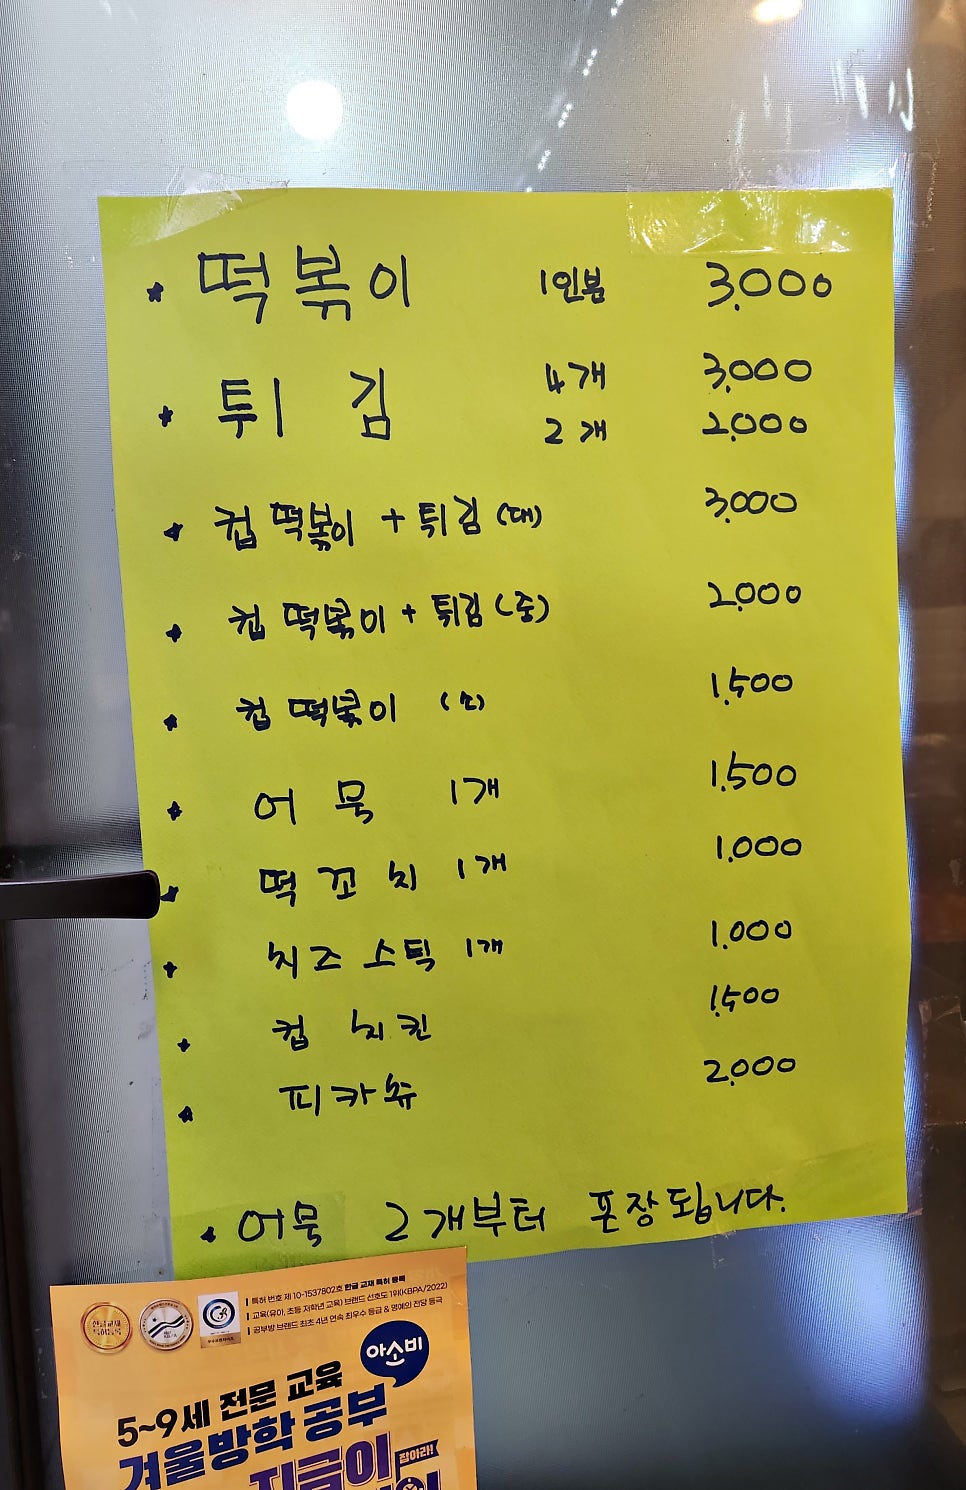 * 떡볶이 1인분 3,000
* 튀김 4개 3,000
2개 2,000
* 컵떡볶이 + 튀김 (대) 3,000
* 컵떡볶이 + 튀김 (중) 2,000
* 컵떡볶이 (소) 1,500
* 어묵 1개 1,500
* 떡꼬치 1개 1,000
* 치즈스틱 1개 1,000
* 컵치킨 1,500
* 피카츄 2,000
* 어묵 2개부터 포장됩니다.
특허 번호 제 10-1537802호 한글 교재 특허 등록
교육(유아, 초등 저학년 교육) 브랜드 선호도 1위(KBPA/2022)
공부방 브랜드 최초 4년 연속 최우수 등급 & 명예의 전당 등극
한글교재
특허등록
아소비
5~9세 전문 교육
겨울방학 공부
지금이
잡아라!